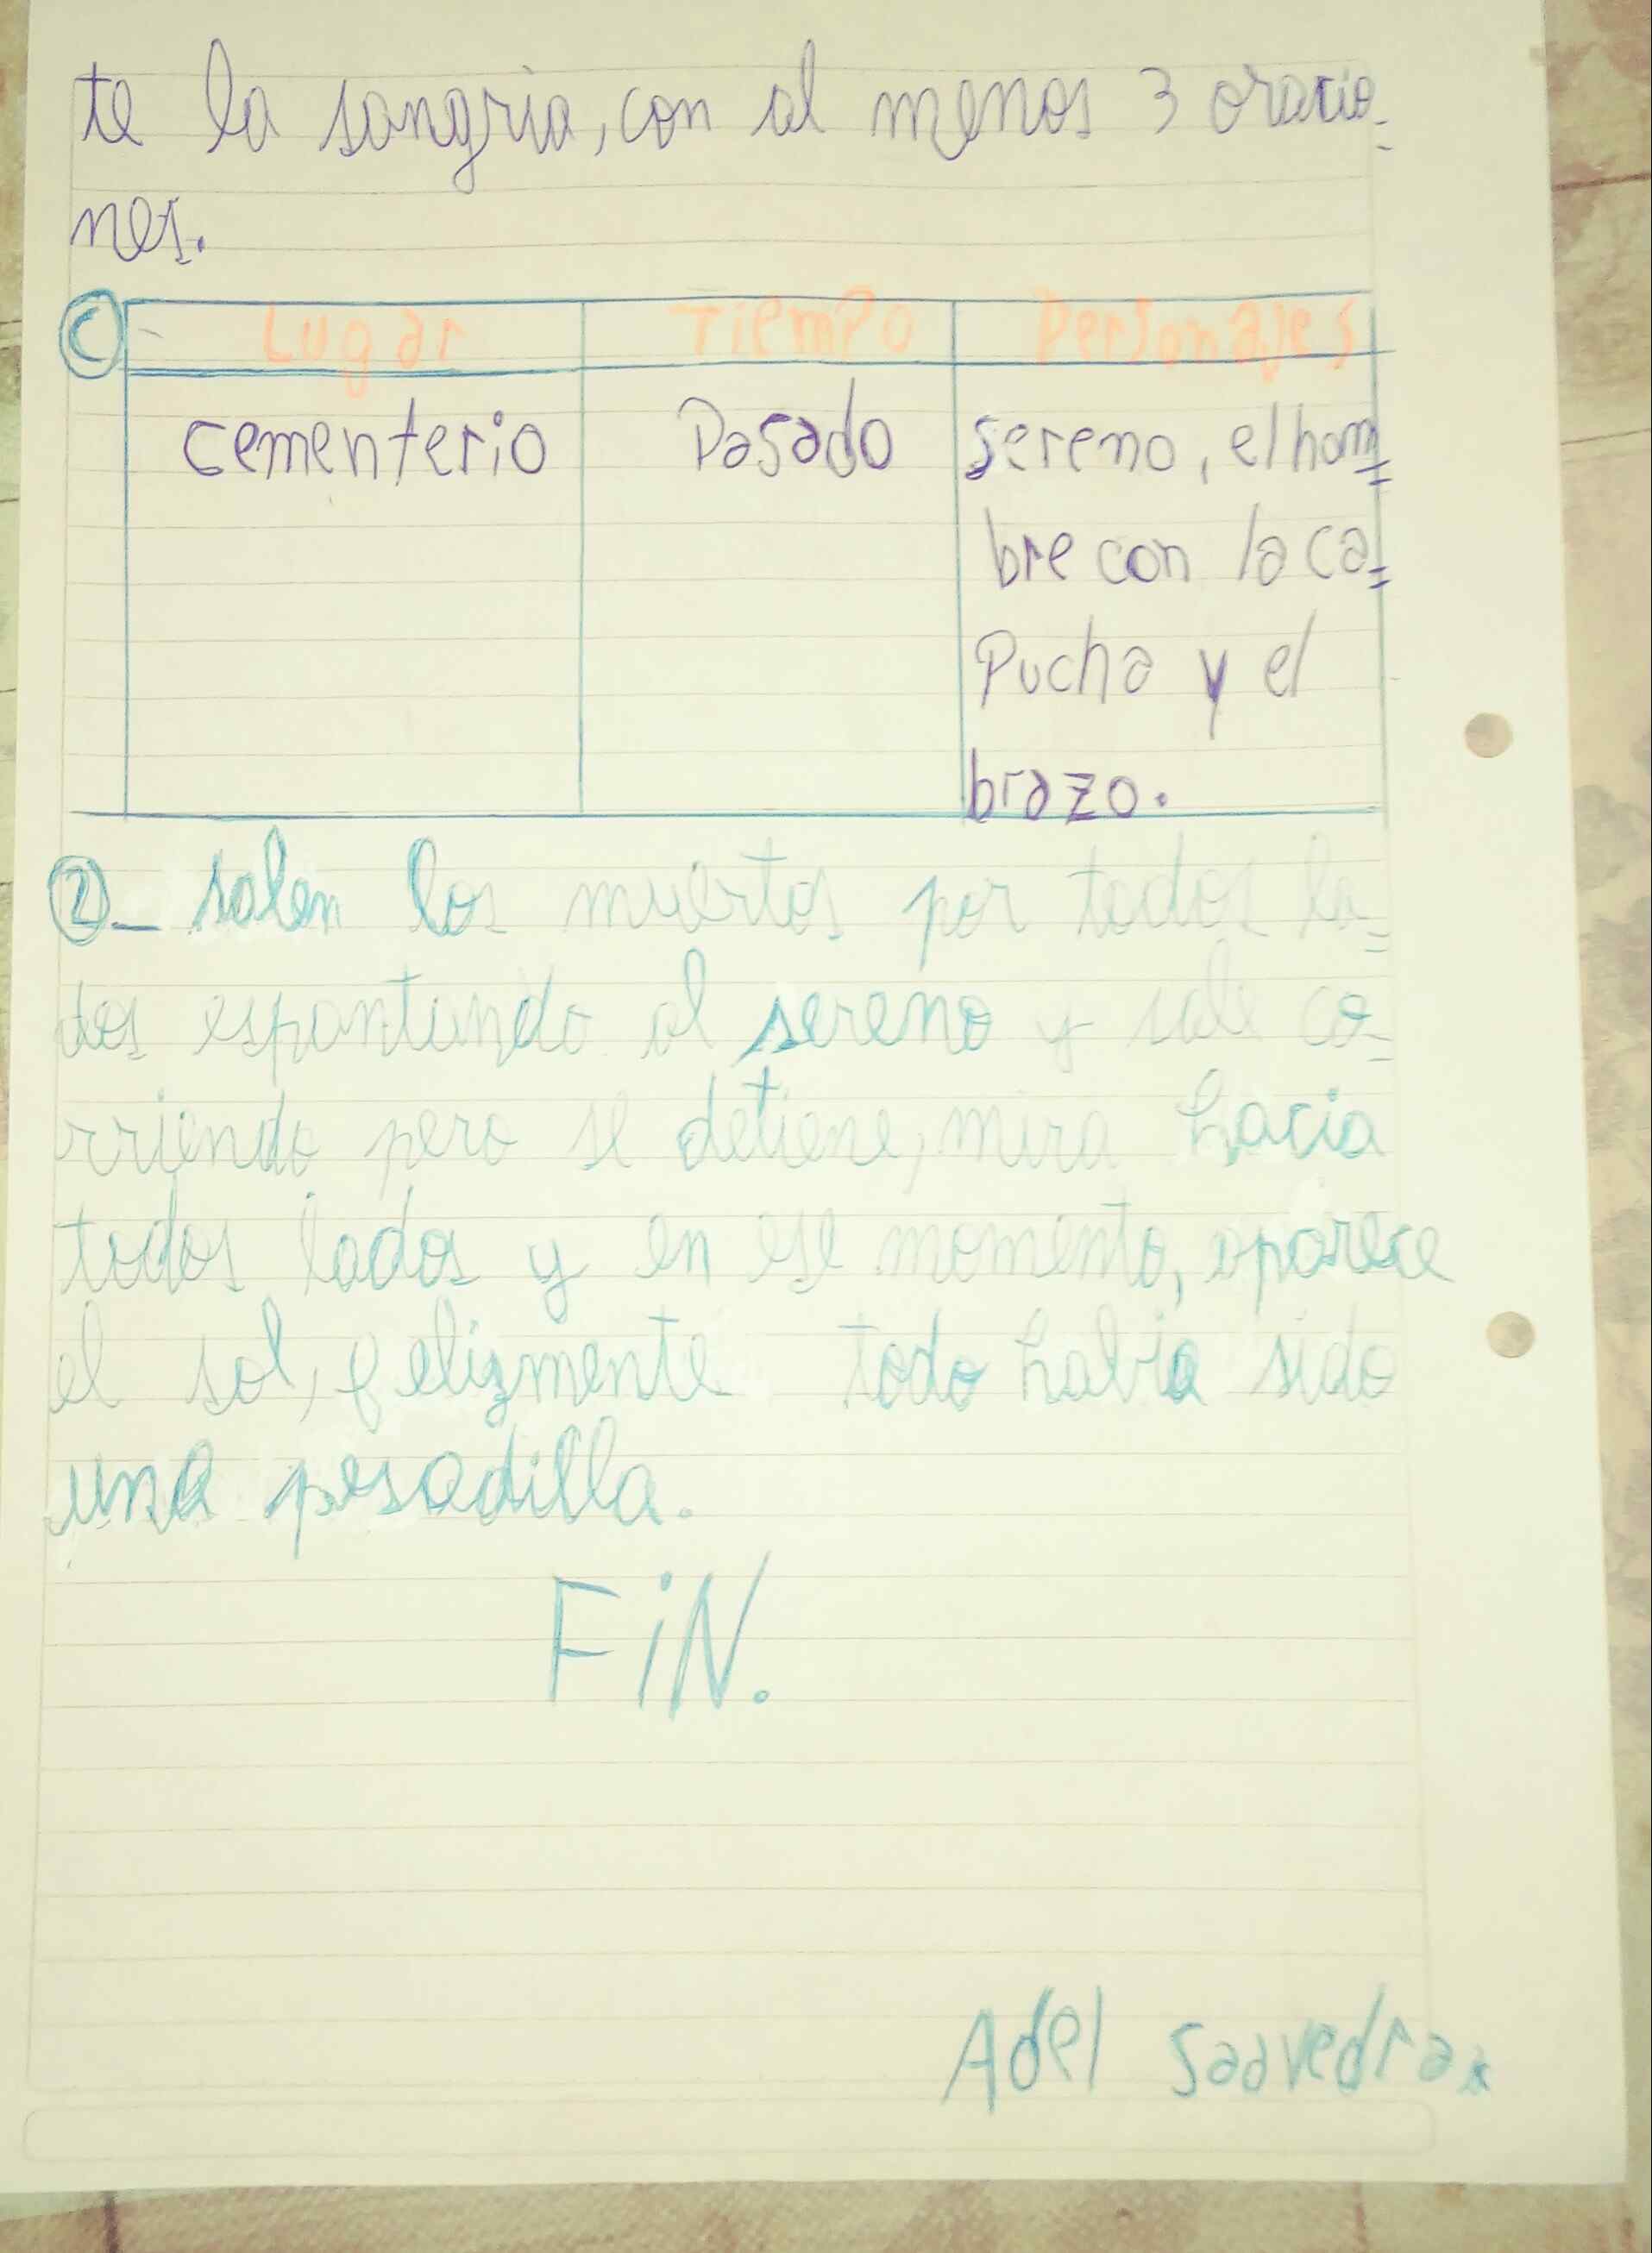 te la sangria, con al menos 3 oracio-
nes.
C Lugar Tiempo Personajes
cementerio Pasado sereno, el hom=
bre con la ca=
Pucha y el
brazo.
2- salen los muertos por todos la=
dos espantando al sereno y sale co=
rriendo pero se detiene, mira hacia
todos lados y en ese momento, aparece
el sol, felizmente todo habia sido
una pesadilla.
FiN.
Adel Saavedra.